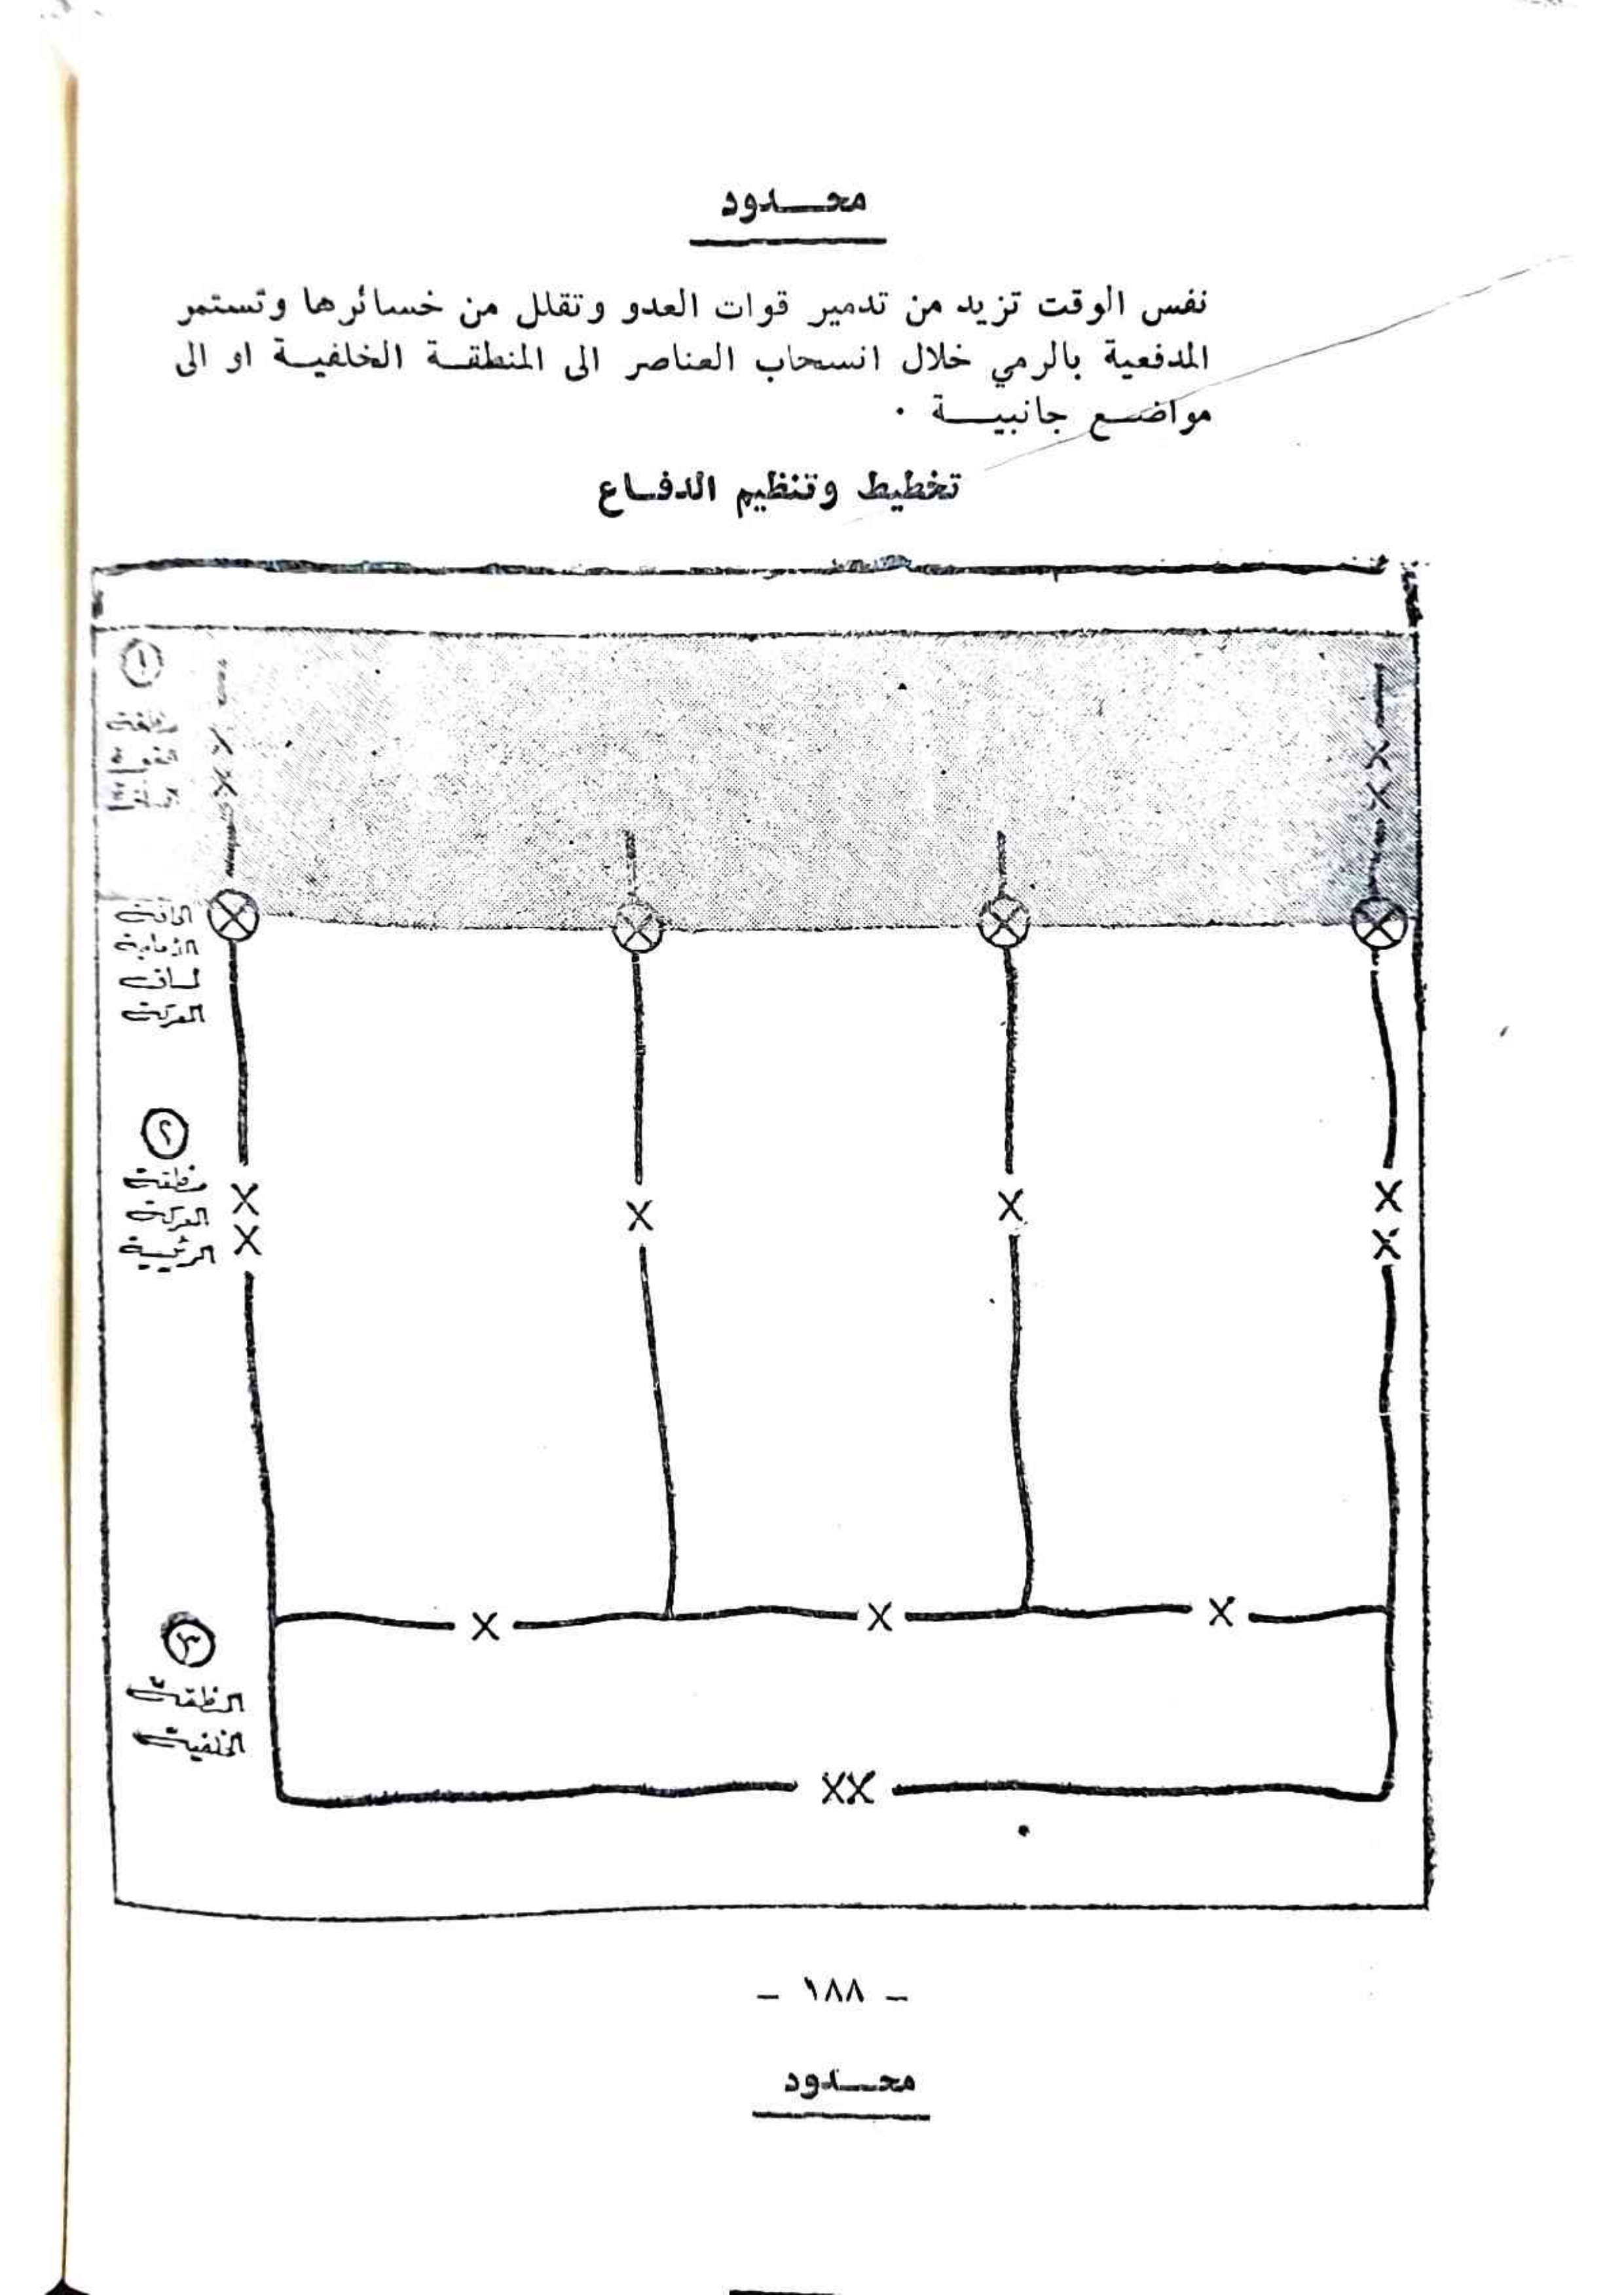 محـــدود
نفس الوقت تزيد من تدمير قوات العدو وتقلل من خسائرها وتستمر
المدفعية بالرمي خلال انسحاب العناصر الى المنطقــة الخلفيــة او الى
مواضــع جانبيـــة ٠
تخطيط وتنظيم الدفــاع
١
X
X
X
X
الحافة
الأمامية
لساحة
المعركة
٢
منطقة
المعركة
الرئيسية
X
X
X
X
X
X
X
X
X
٣
المنطقة
الخلفية
XX
– ١٨٨ –
محـــدود